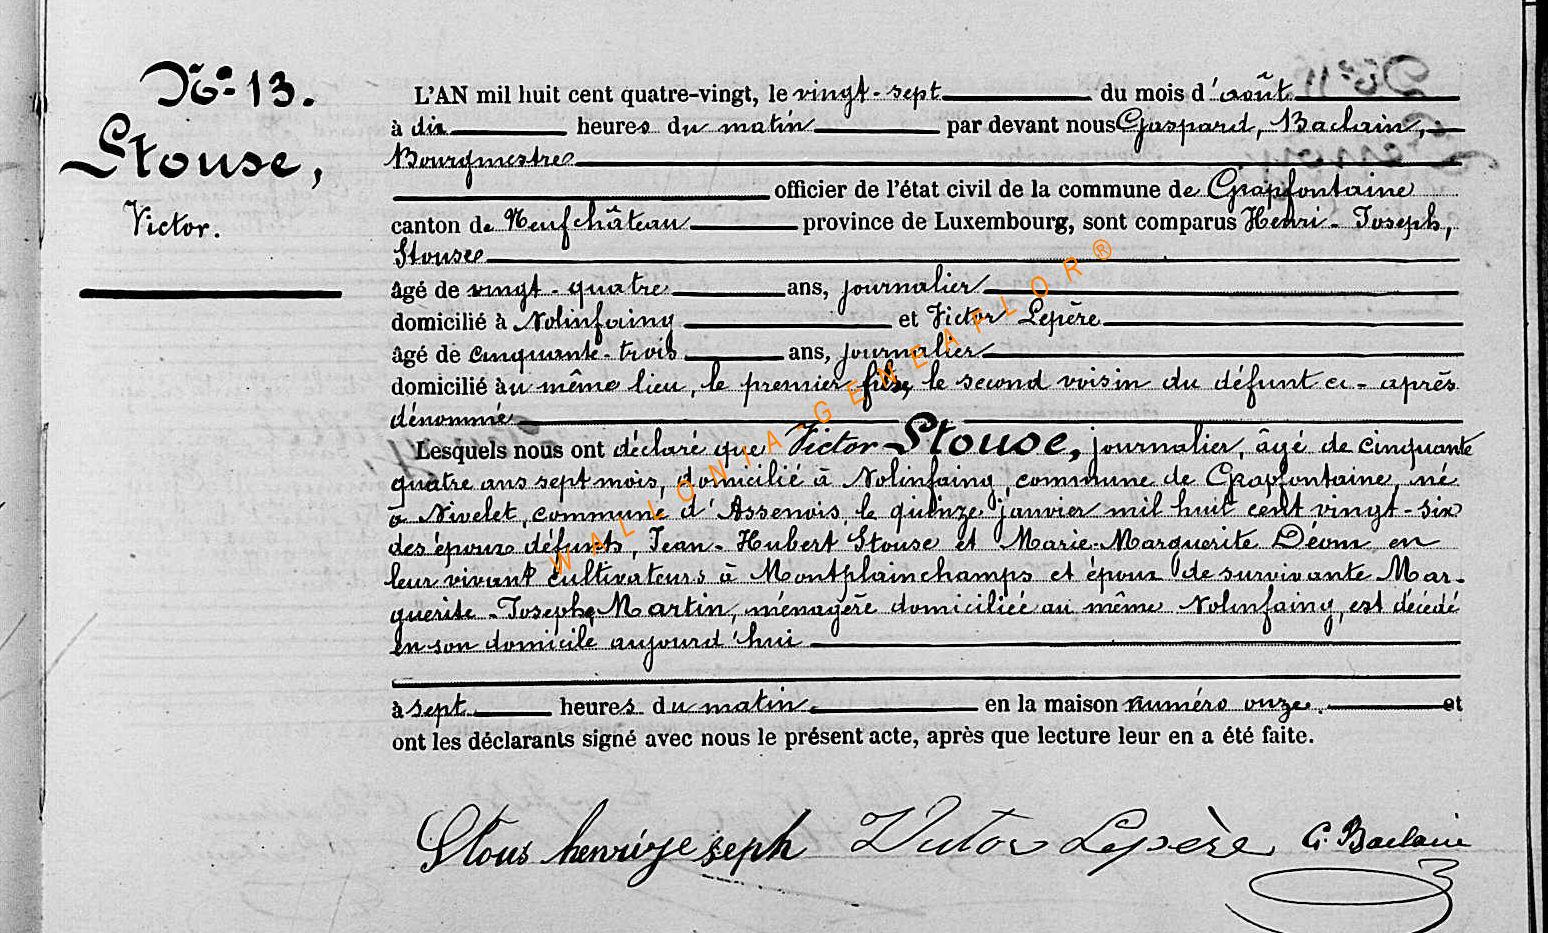 No. 13.
Stouse,
Victor.
L'AN mil huit cent quatre-vingt, le vingt-sept du mois d'août
à dix heures du matin par devant nous Gaspard, Baclain,
Bourgmestre
officier de l'état civil de la commune de Grapfontaine
canton de Neufchâteau province de Luxembourg, sont comparus Henri-Joseph,
Stouse
âgé de vingt-quatre ans, journalier
domicilié à Nolinfaing et Victor Lepère
âgé de cinquante-trois ans, journalier
domicilié au même lieu, le premier fils, le second voisin du défunt ci-après
dénommé
Lesquels nous ont déclaré que Victor Stouse, journalier, âgé de cinquante
quatre ans sept mois, domicilié à Nolinfaing, commune de Grapfontaine, né
à Nivelet, commune d'Assenois, le quinze janvier mil huit cent vingt-six
des époux défunts, Jean-Hubert Stouse et Marie-Marguerite Déom en
leur vivant cultivateurs à Montplainchamps et époux de survivante Mar-
guerite-Josephe Martin, ménagère domiciliée au même Nolinfaing, est décédé
en son domicile aujourd'hui
à sept heures du matin en la maison numéro onze. et
ont les déclarants signé avec nous le présent acte, après que lecture leur en a été faite.
Stous henri je seph Victor Lepère G. Baclain
WALLONIA-GENEAFLOR®